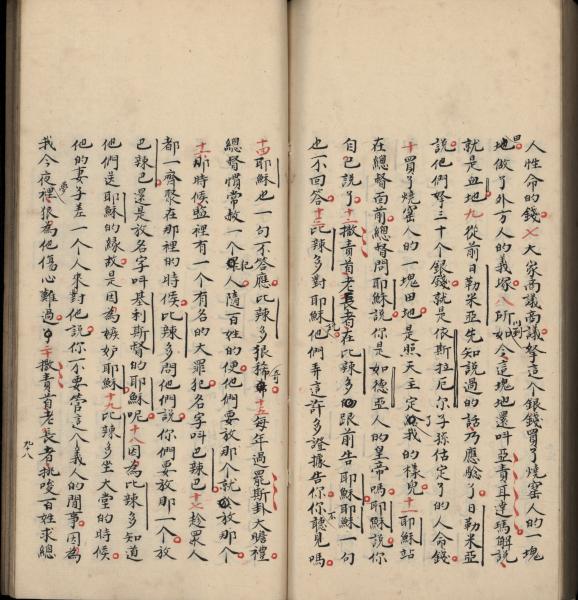 人性命的錢七大家商議商議拏這个銀錢買了燒窑人的一塊
田地做了外方人的義塚八所以到如今這塊地還叫亞責耳達瑪解說
就是血地九從前日勒米亞先知說過的話乃應驗了日勒米亞
說他們拏三十个銀錢就是依斯拉厄尔子孫估定了的人命錢
十買了燒窑人的一塊田地是照天主定給我的樣兒十一耶穌站
在總督面前總督問耶穌說你是如德亞人的皇帝嗎耶穌說你
自己說了十二撒責首老長者在比辣多的跟前告耶穌耶穌一句
也不回答十三比辣多對耶穌說他們弄這許多證據告你你不聽見嗎
十四耶穌也一句不答應比辣多狠稀奇十五每年過罷斯卦大瞻禮
總督慣常赦一个犯人隨百姓的便他們要放那个就放那个
十六那時候監裡有一个有名的大罪犯名字叫巴辣巴十七趁眾人
都一齊聚在那裡的時候比辣多問他們說你們要放那一个放
巴辣巴還是放名字叫基利斯督的耶穌呢十八因為比辣多知道
他們送耶穌的緣故是因為嫉妒耶穌十九比辣多坐大堂的時候
他的妻子差一个人來對他說你不要管這義人的閒事因為
我今夜夢裡狠為他傷心難過了二十撒責首老長者挑唆百姓求總
九八